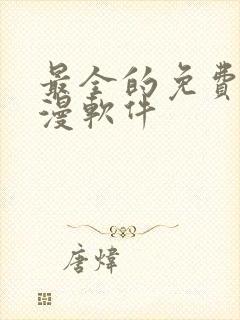 最全的免費
漫軟件
唐煒